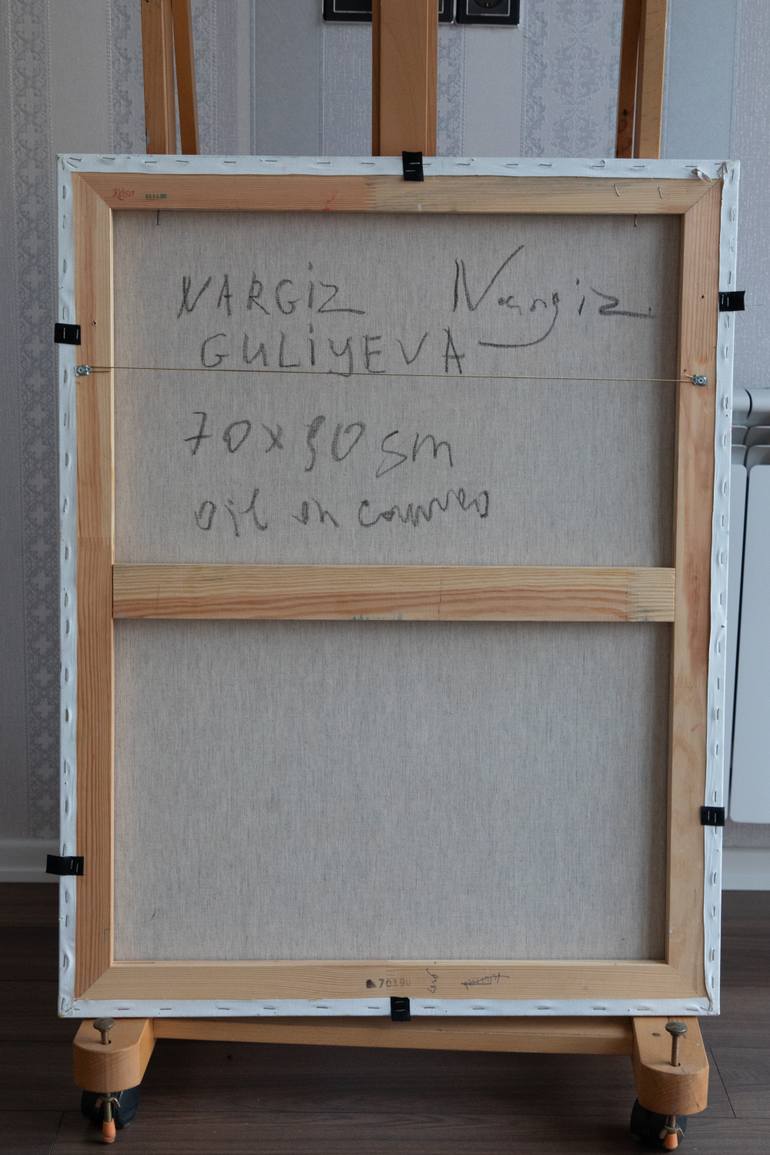 NARGIZ Nargiz
GULIYEVA
70x90 sm
oil on canvas
70x90